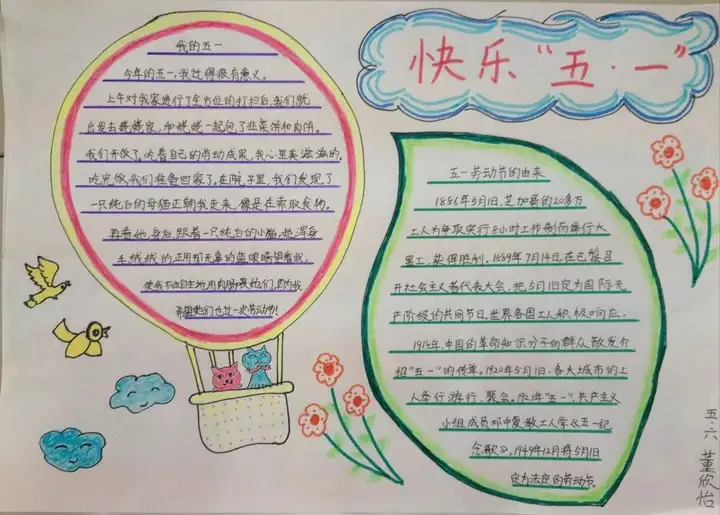 快乐“五·一”
我的五一
今年的五一,我过得很有意义。
上午对我家进行了全方位的打扫后,我们就
出发去姥姥家,和姥姥一起包了韭菜饼和肉饼。
我们开饭了,吃着自己的劳动成果,我心里美滋滋的。
吃完饭,我们准备回家了,在院子里,我们发现了
一只纯白的母猫正朝我走来,像是在索取食物。
再看她身后,跟着一只纯白的小猫,她浑身
毛绒绒的,正用那无辜的蓝眼睛望着我,
使我不由自主地用肉肠喂她们,因为我
希望她们也过一次劳动节!
五一劳动节的由来
1886年5月1日,芝加哥的20多万
工人为争取实行8小时工作制而举行大
罢工,获得胜利。1889年7月14日,在巴黎召
开社会主义者代表大会,把5月1日定为国际无
产阶级的共同节日,世界各国工人积极响应。
1918年,中国的革命知识分子向群众散发介
绍“五一”的传单。1920年5月1日,各大城市的工
人举行游行、聚会。1921年“五一”,共产主义
小组成员邓中夏教工人学《五一纪
念歌》,1949年12月将5月1日
定为法定的劳动节。
五.六 董欣怡